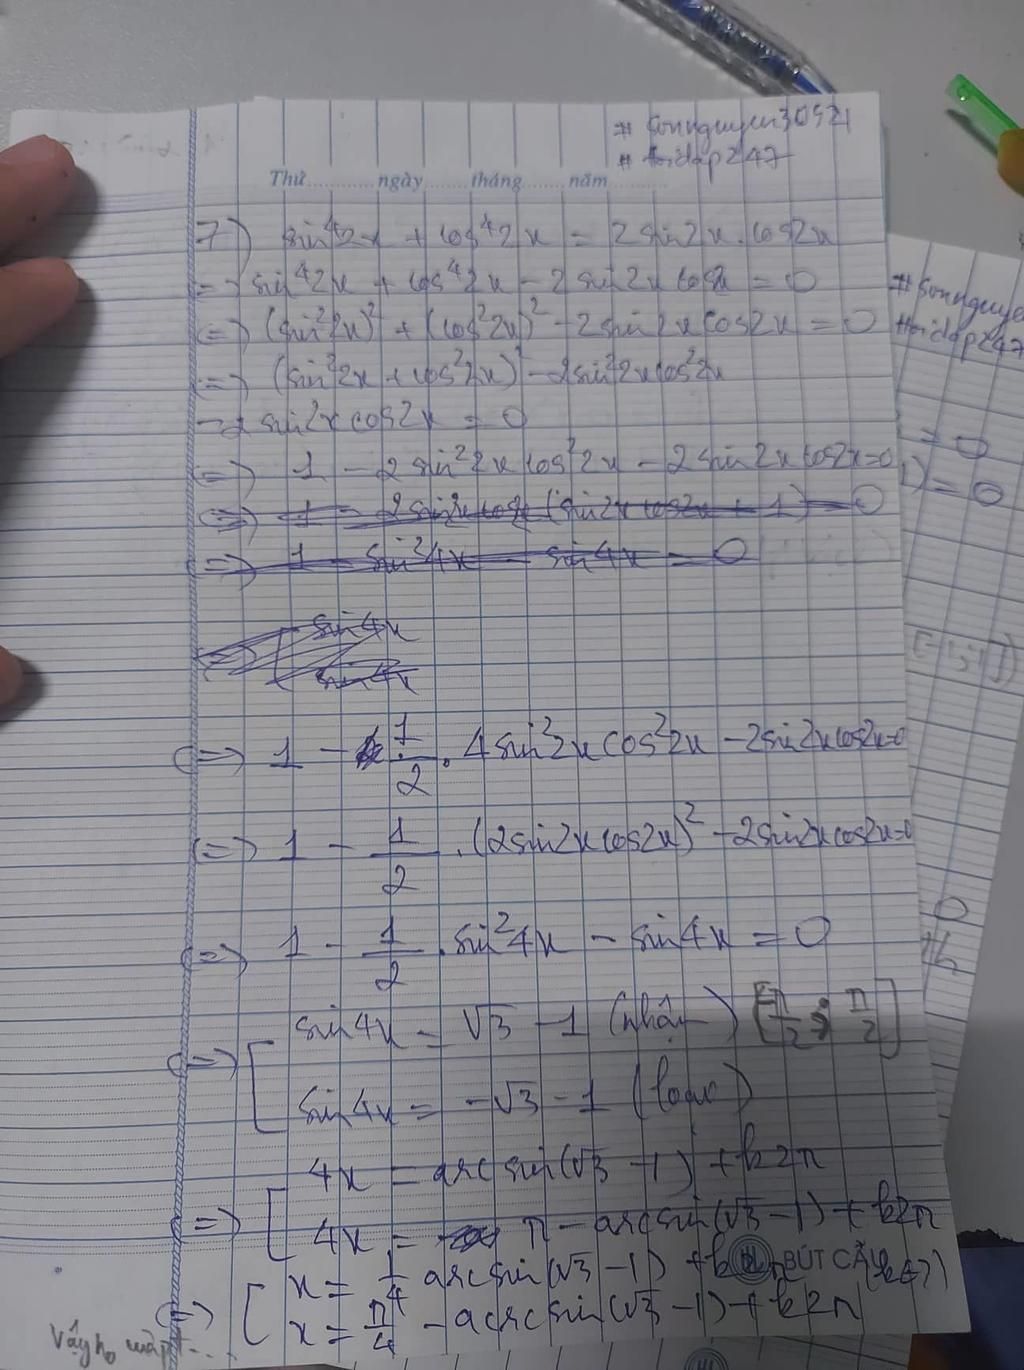 # sonnguyen30521
# hoidap247
Thứ.......... ngày...... tháng...... năm..........
7) sin⁴2x + cos⁴2x = 2sin2x.cos2x
=> sin⁴2x + cos⁴2x - 2sin2x cos2x = 0
<=> (sin²2x)² + (cos²2x)² - 2sin2x cos2x = 0
<=> (sin²2x + cos²2x)² - 2sin²2x cos²2x
- 2 sin2x cos2x = 0
<=> 1 - 2sin²2x cos²2x - 2sin2x cos2x = 0
<=> 1 - 2sin2x cos2x (sin2x cos2x + 1) = 0
<=> 1 - sin²4x - sin4x = 0
<=> [ sin4x
sin4x
<=> 1 - 1/2 . 4sin²2x cos²2x - 2sin2x cos2x = 0
<=> 1 - 1/2 . (2sin2x cos2x)² - 2sin2x cos2x = 0
<=> 1 - 1/2 . sin²4x - sin4x = 0
<=> [ sin4x = √3 - 1 (nhận) [-π/2; π/2]
sin4x = -√3 - 1 (loại)
<=> [ 4x = arcsin(√3 - 1) + k2π
4x = π - arcsin(√3 - 1) + k2π
<=> [ x = 1/4 arcsin(√3 - 1) + k
x = π/4 - arcsin(√3 - 1) + k2π
BÚT CÂ
Vậy
# sonnguye
# hoidap247
= 0
1) = 0
[-1;1]
0